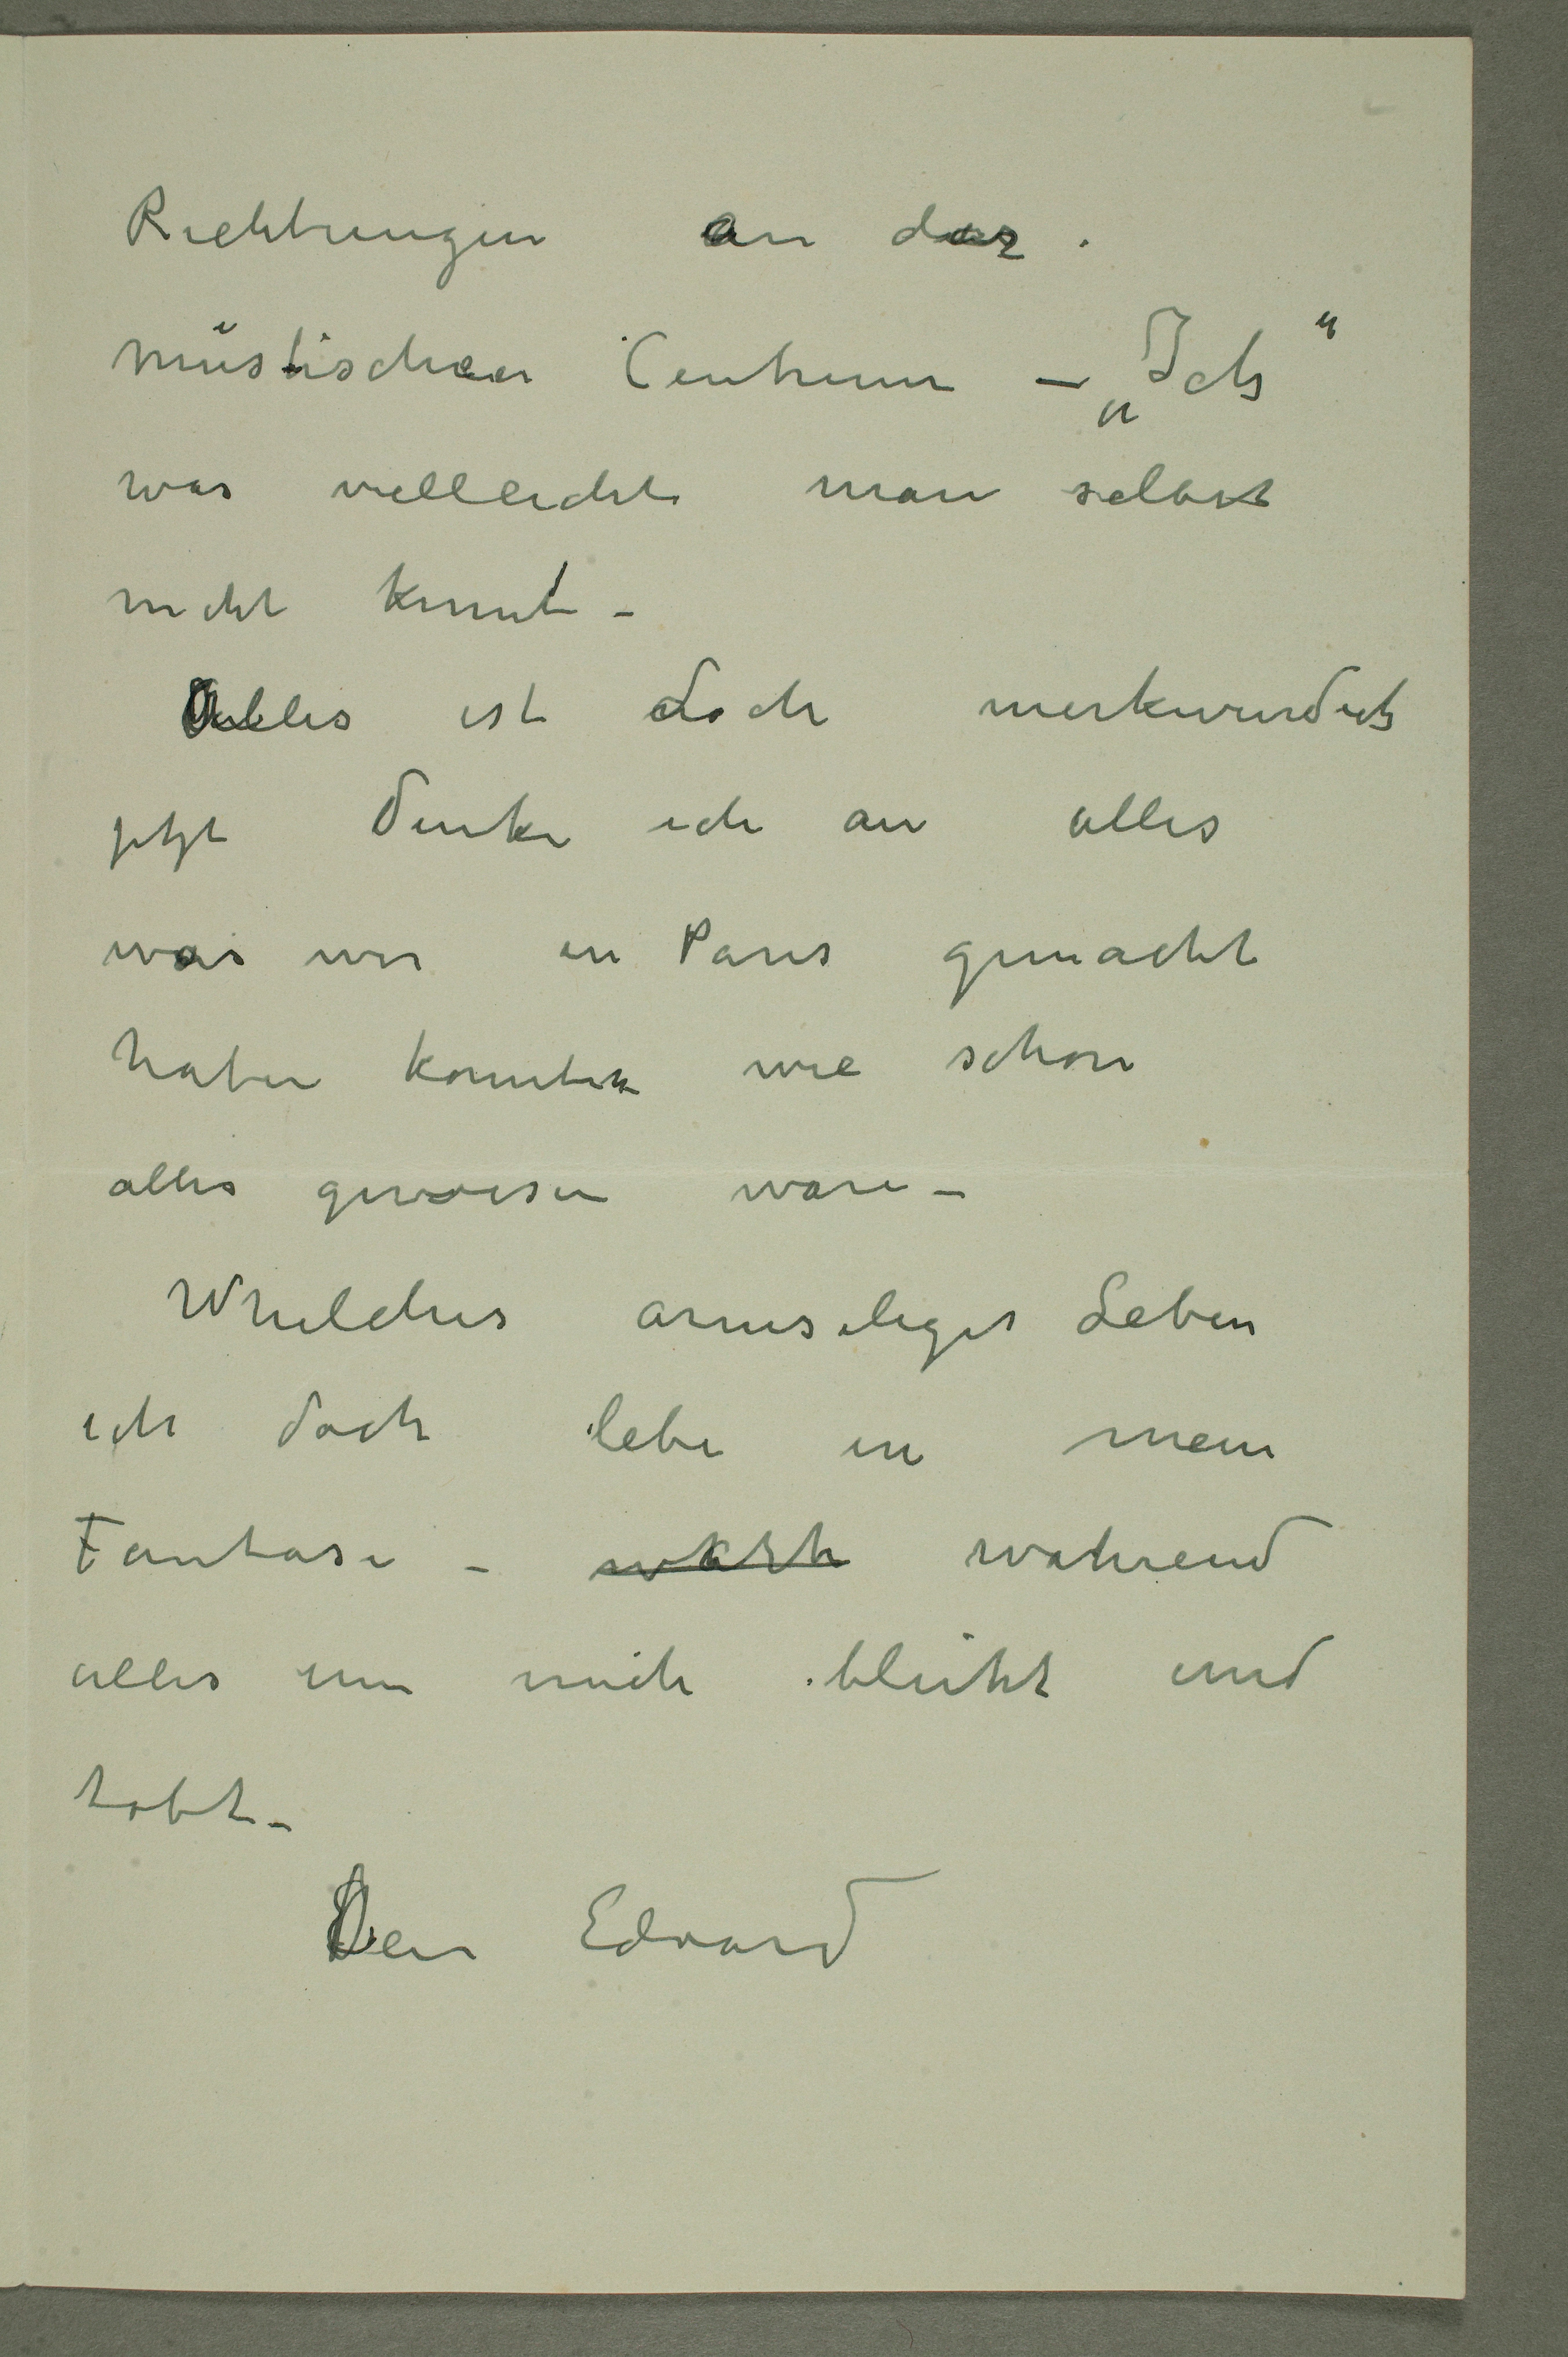 Richtungen an das
müstischen Centrum – „Ich“
was vielleicht man selbst
nicht kennt –
Alles ist doch merkwurdich
jetzt denke ich an alles
was wir in Paris gemacht
haben konnten wie schon
alles gewesen ware –
Whelches armseliges Leben
ich doch lebe in mein
Fantasi – wahrend
alles um mich bluht und
tobt –
Dein Edvard